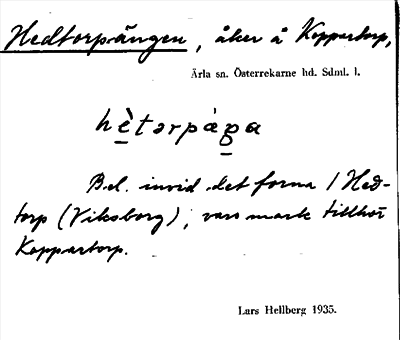 Hedtorpängen, åker å Koppartorp,
Ärla sn. Österrekarne hd. Sdml. l.
hètərpàŋa
Bel. invid det forna / Hed-
torp (Viksborg), vars mark tillhör
Koppartorp.
Lars Hellberg 1935.